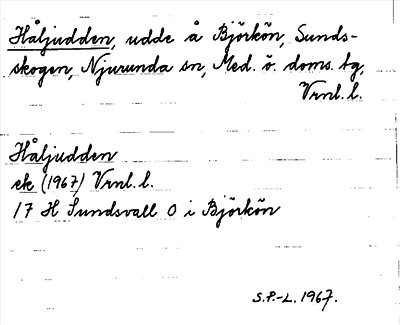 Håljudden, udde å Björkön, Sunds-
skogen, Njurunda sn, Med. ö. doms. tg,
Vrnl. l.
Håljudden
ek (1967) Vrnl. l.
17 H Sundsvall O i Björkön
S.P.-L. 1967.